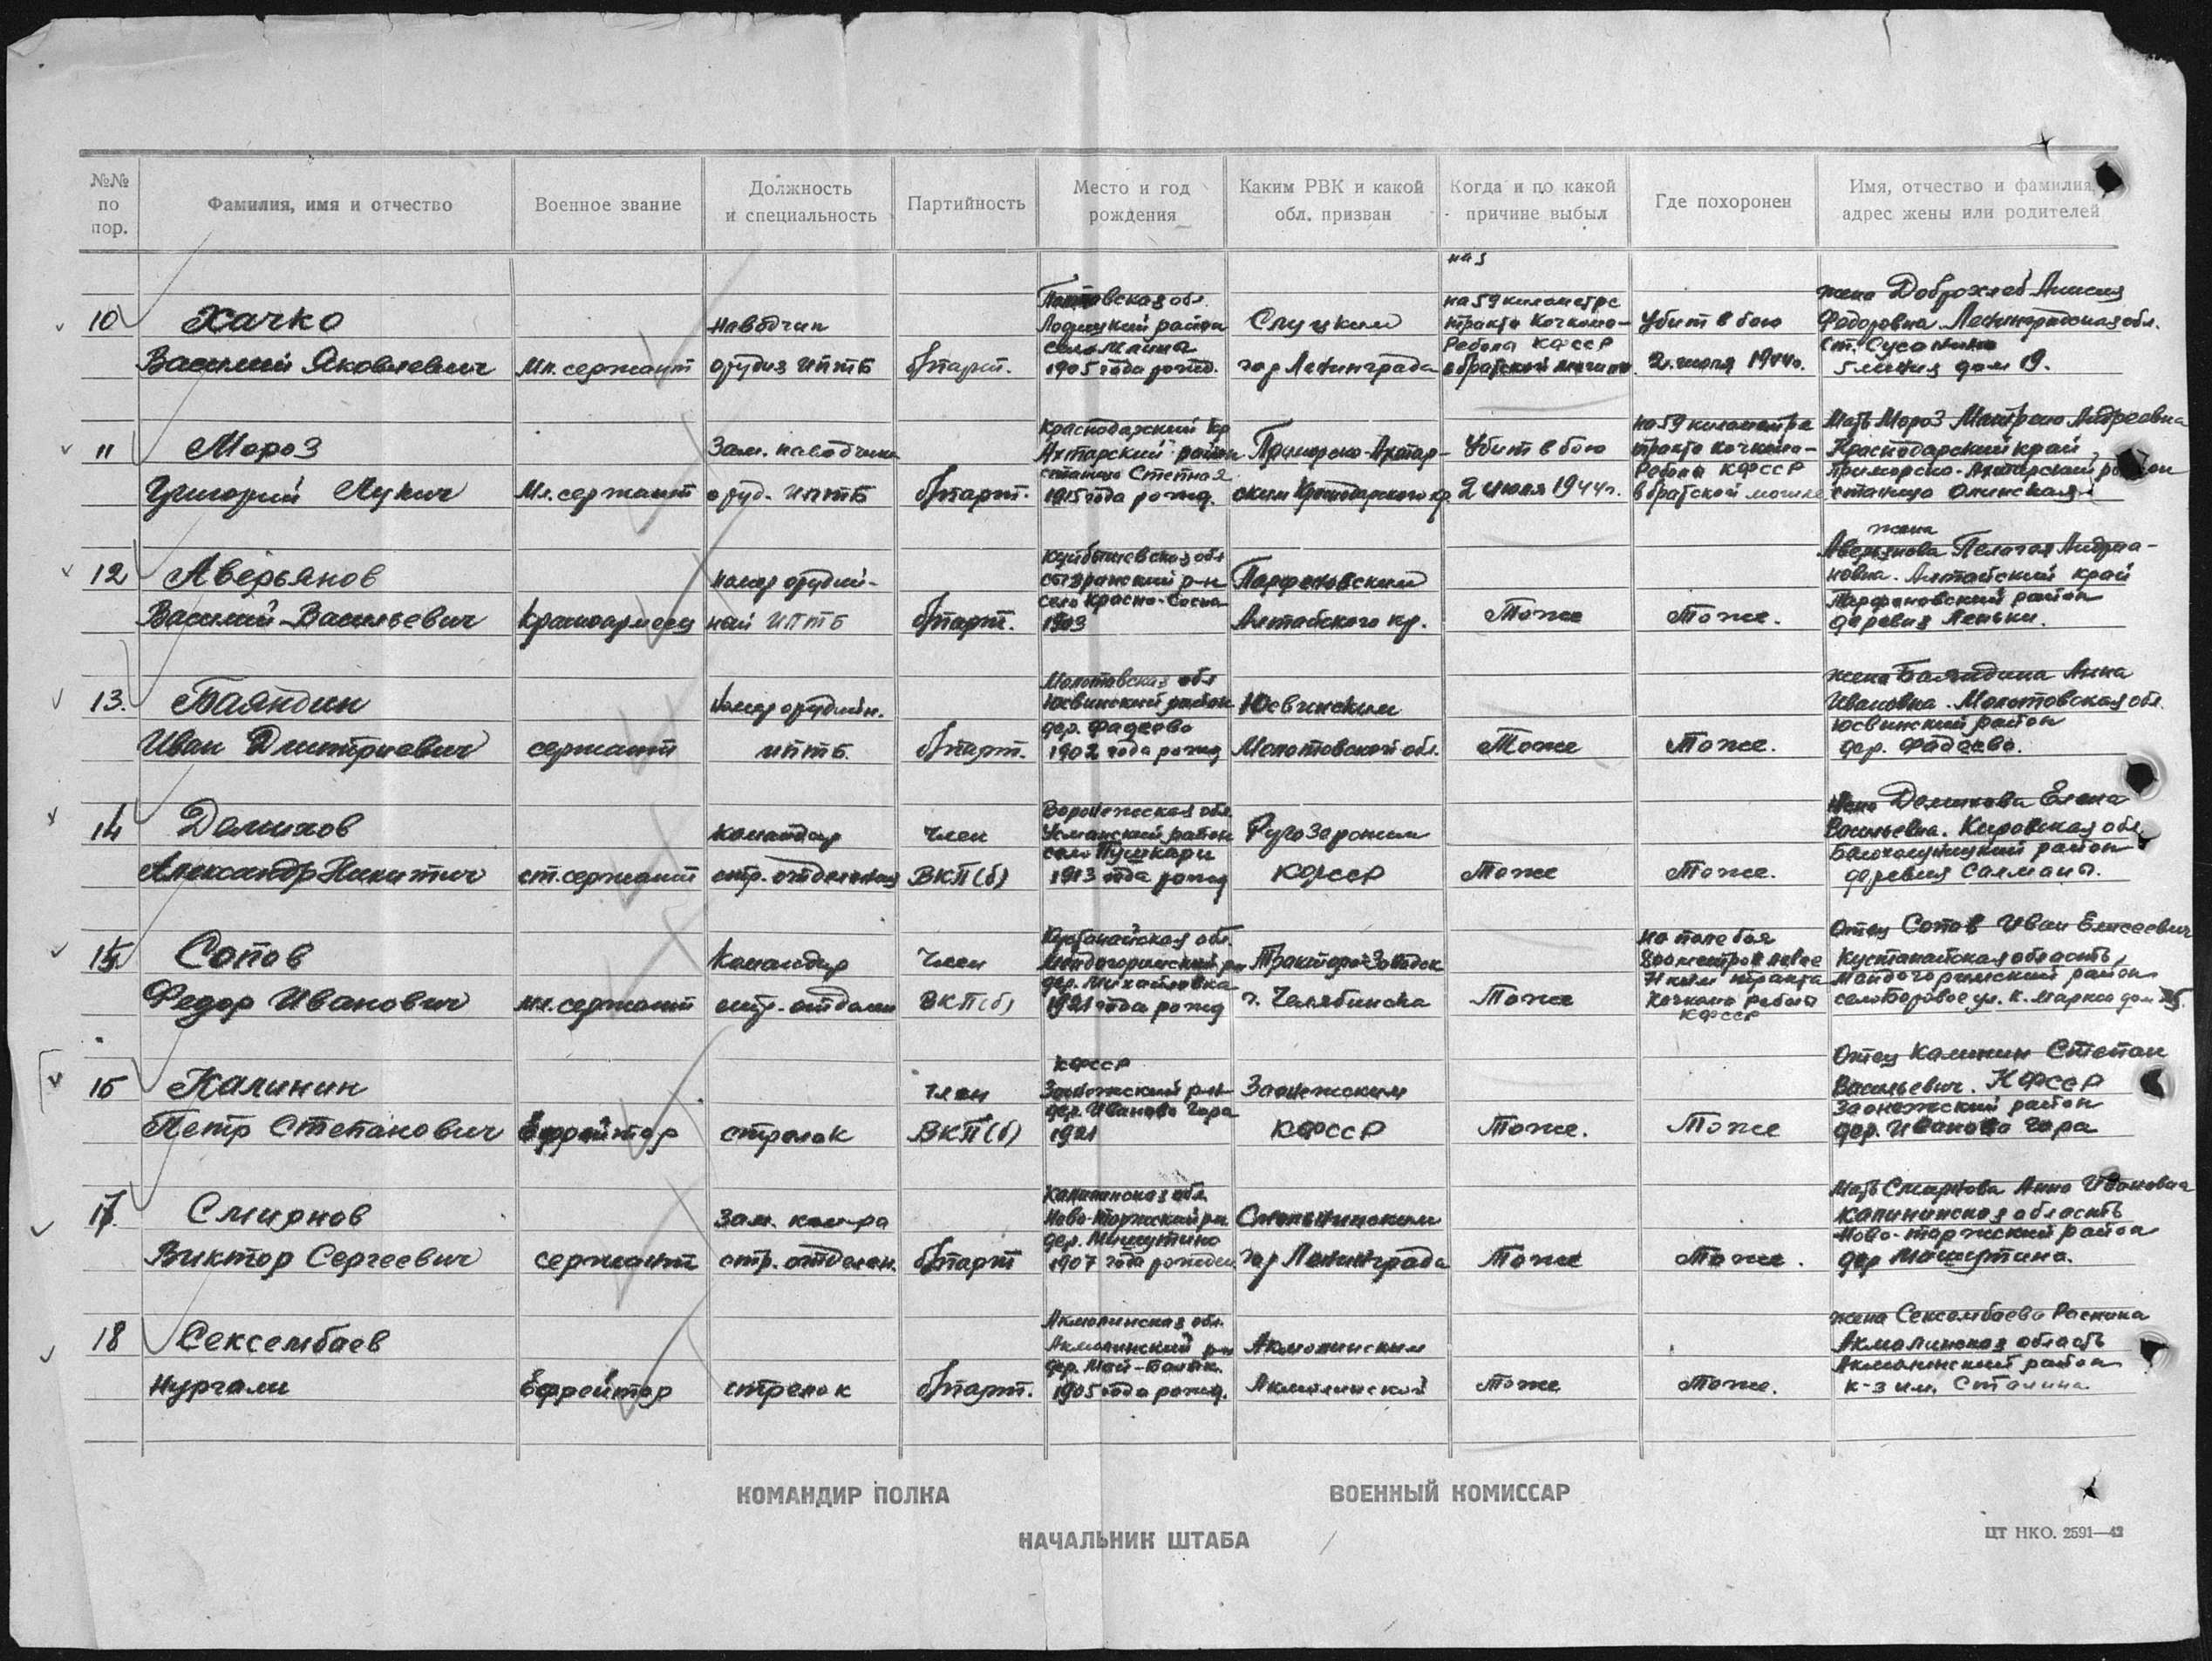 №№ по пор.
Фамилия, имя и отчество
Военное звание
Должность и специальность
Партийность
Место и год рождения
Каким РВК и какой обл. призван
Когда и по какой причине выбыл
Где похоронен
Имя, отчество и фамилия, адрес жены или родителей
на 5
10
Хачко
Василий Яковлевич
Мл. сержант
Наводчик
орудия ИПТБ
б/парт.
1905 года рожд.
Слуцким
гор Ленинграда
на 59 километре
тракта Кочкома-
Ребола КФССР
в братской могиле
Убит в бою
2. июля 1944г.
жена Доброхлеб Анисия
Федоровна Ленинградская обл.
ст. Сусанино
5 линия дом 19.
11
Мороз
Григорий Лукич
Мл. сержант
Зам. наводчика
оруд. ИПТБ
б/парт.
Краснодарский кр
Ахтарский район
станица Степная
1915 года рожд.
Приморско-Ахтар-
ским Краснодарского кр.
Убит в бою
2 июля 1944г.
на 59 километре
тракта Кочкома-
Ребола КФССР
в братской могиле
Мать Мороз Андреевна
Краснодарский край,
Приморско-Ахтарский район
станица
12
Аверьянов
Василий Васильевич
Красноармеец
номер орудий-
ный ИПТБ
б/парт.
Куйбышевская обл
сызранский р-н
село Красно-Сосна
1903
Парфеновским
Алтайского кр.
Тоже
Тоже.
жена
Аверьянова Пелагея Андриа-
новна. Алтайский край
Парфеновский район
деревня Леньки.
13.
Баяндин
Иван Дмитриевич
сержант
Номер орудийн.
ИПТБ.
б/парт.
Молотовская обл
Юсвинский район
дер. Фадеево
1902 года рожд
Юсвинским
Молотовской обл.
Тоже
Тоже.
жена Баяндина Анна
Ивановна. Молотовская обл.
Юсвинский район
дер. Фадеево.
14
Демихов
Александр Никитич
ст. сержант
командир
стр. отделения
Член
ВКП(б)
Воронежская обл.
Усманский район
село Пушкари
1913 года рожд
Ругозерским
КФССР
Тоже
Тоже.
жена Демихова Елена
Васильевна. Кировская обл
Белохолуницкий район
деревня Салманы.
15
Сопов
Федор Иванович
мл. сержант
Командир
стр. отделен
Член
ВКП(б)
Кустанайская обл.
Мендыгоринский рн
дер. Михайловка
1921 года рожд
Тракторо-Заводск
г. Челябинска
Тоже
на поле боя
800 метров левее
тракта
Кочкома Ребола
КФССР
Отец Сопов Иван Елисеевич
Кустанайская область,
район
село Боровое ул. К. Маркса дом
16
Калинин
Петр Степанович
Ефрейтор
стрелок
член
ВКП(б)
КФССР
Заонежский р-н
дер. Иванова Гора
1921
Заонежским
КФССР
Тоже.
Тоже
Отец Калинин Степан
Васильевич. КФССР
Заонежский район
дер. Иванова Гора
17.
Смирнов
Виктор Сергеевич
сержант
Зам. ком-ра
стр. отделен.
б/парт
Калининская обл.
Ново-Торжский рн
дер. Мишутино
1907 года рожден
Смольнинским
гор Ленинграда
Тоже
Тоже.
Мать Смирнова Анна Ивановна
Калининская область
Ново-таржский район
дер Мишутина.
18
Сексембаев
Нургали
Ефрейтор
стрелок
б/парт.
Акмолинская обл.
Акмолинский рн
дер. Май-Балык.
1905 года рожд.
Акмолинским
Акмолинской
тоже
тоже.
жена Сексембаева
Акмолинская область
Акмолинский район
к-з им. Сталина
КОМАНДИР ПОЛКА
ВОЕННЫЙ КОМИССАР
НАЧАЛЬНИК ШТАБА
ЦТ НКО. 2591—42